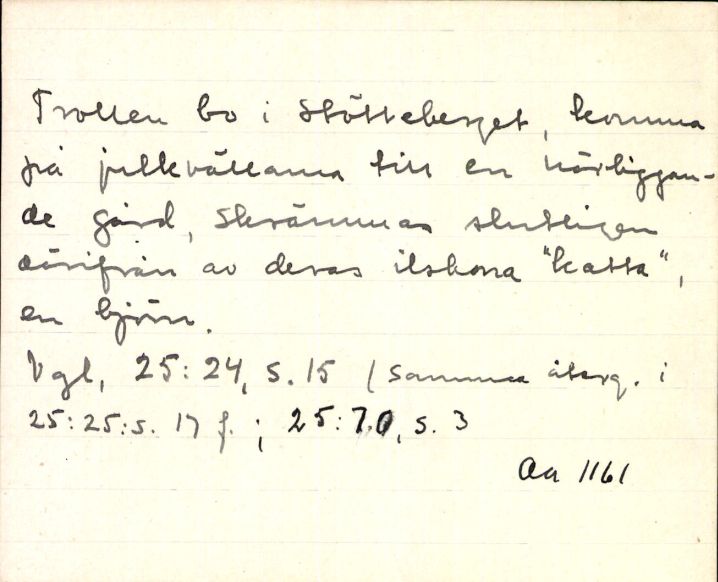 Trollen bo i Stötteberget, komma
på julkvällarna till en närliggan-
de gård, skrämmas slutligen
därifrån av deras ilskna "katta",
en björn.
Vgl, 25:24, s. 15 (samma återg. i
25:25:s. 17 f. ; 25:70, s. 3
Aa 1161